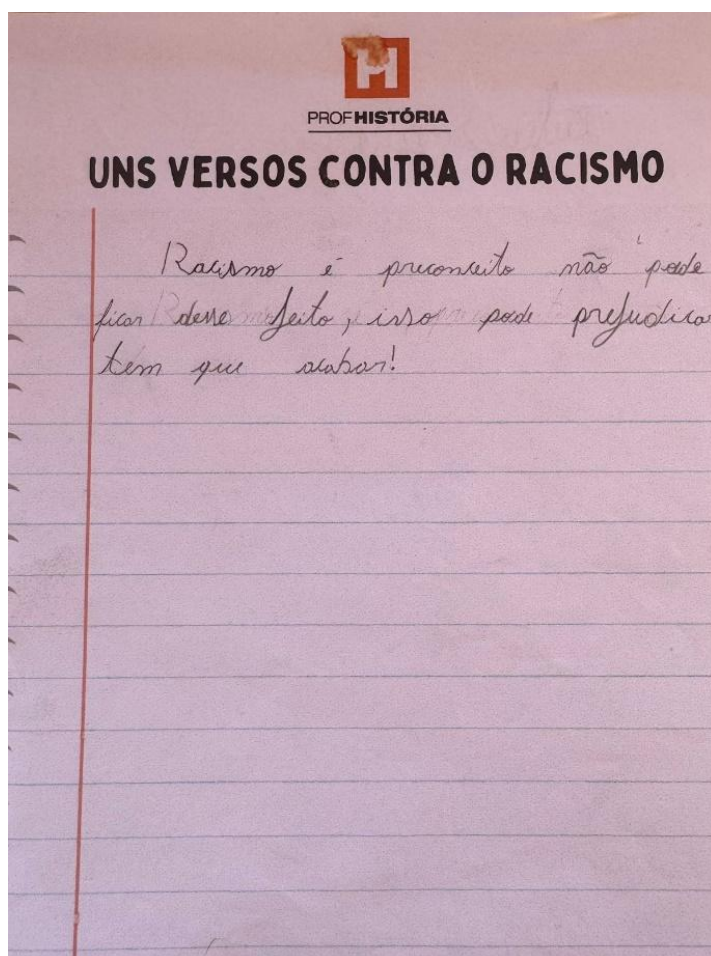 H
PROFHISTÓRIA
UNS VERSOS CONTRA O RACISMO
Racismo é preconceito não pode
ficar desse jeito, isso pode prejudicar
tem que acabar!